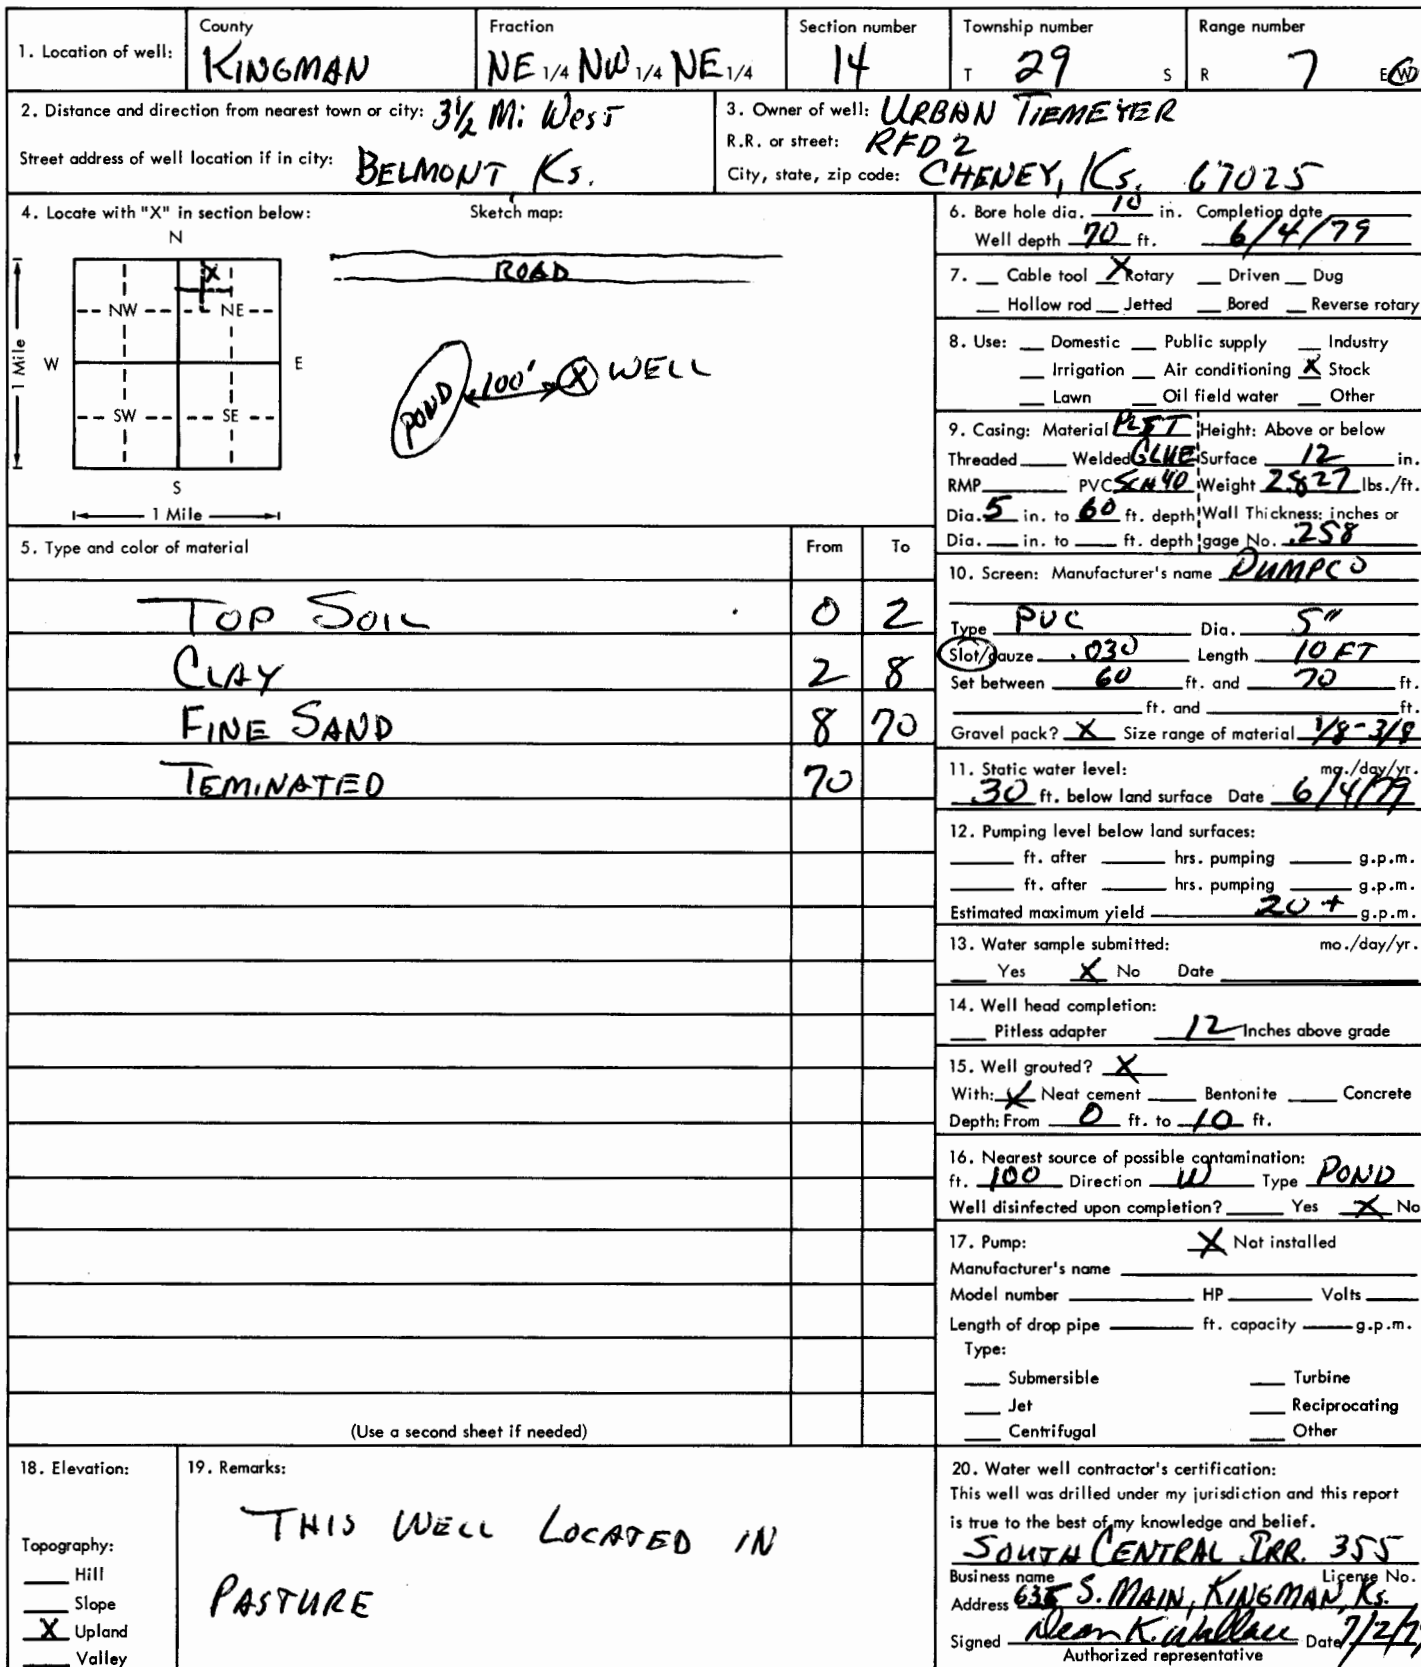 1. Location of well:
County
KINGMAN
Fraction
NE 1/4 NW 1/4 NE 1/4
Section number
14
Township number
T 29 S
Range number
R 7 E W
2. Distance and direction from nearest town or city: 3½ Mi West
Street address of well location if in city: BELMONT Ks.
3. Owner of well: URBAN TIEMEYER
R.R. or street: RFD 2
City, state, zip code: CHENEY, Ks. 67025
4. Locate with "X" in section below:
Sketch map:
N
X
NW NE
W E
SW SE
S
1 Mile
1 Mile
ROAD
POND 100' X WELL
5. Type and color of material From To
TOP SOIL 0 2
CLAY 2 8
FINE SAND 8 70
TEMINATED 70
(Use a second sheet if needed)
6. Bore hole dia. 10 in. Completion date
Well depth 70 ft. 6/4/79
7. Cable tool X Rotary Driven Dug
Hollow rod Jetted Bored Reverse rotary
8. Use: Domestic Public supply Industry
Irrigation Air conditioning X Stock
Lawn Oil field water Other
9. Casing: Material PLST Height: Above or below
Threaded Welded GLUE Surface 12 in.
RMP PVC SCH 40 Weight 2.827 lbs./ft.
Dia. 5 in. to 60 ft. depth Wall Thickness: inches or
Dia. in. to ft. depth gage No. .258
10. Screen: Manufacturer's name DUMPCO
Type PVC Dia. 5"
Slot/gauze .030 Length 10 FT
Set between 60 ft. and 70 ft.
ft. and ft.
Gravel pack? X Size range of material 1/8-3/8
11. Static water level: mo./day/yr.
30 ft. below land surface Date 6/4/79
12. Pumping level below land surfaces:
ft. after hrs. pumping g.p.m.
ft. after hrs. pumping g.p.m.
Estimated maximum yield 20 + g.p.m.
13. Water sample submitted: mo./day/yr.
Yes X No Date
14. Well head completion:
Pitless adapter 12 Inches above grade
15. Well grouted? X
With: X Neat cement Bentonite Concrete
Depth: From 0 ft. to 10 ft.
16. Nearest source of possible contamination:
ft. 100 Direction W Type POND
Well disinfected upon completion? Yes X No
17. Pump: X Not installed
Manufacturer's name
Model number HP Volts
Length of drop pipe ft. capacity g.p.m.
Type:
Submersible Turbine
Jet Reciprocating
Centrifugal Other
18. Elevation:
Topography:
Hill
Slope
X Upland
Valley
19. Remarks:
THIS WELL LOCATED IN
PASTURE
20. Water well contractor's certification:
This well was drilled under my jurisdiction and this report
is true to the best of my knowledge and belief.
SOUTH CENTRAL IRR. 355
Business name License No.
Address S. MAIN, KINGMAN, Ks.
Signed Dean K. Wallace Date 7/2/7
Authorized representative